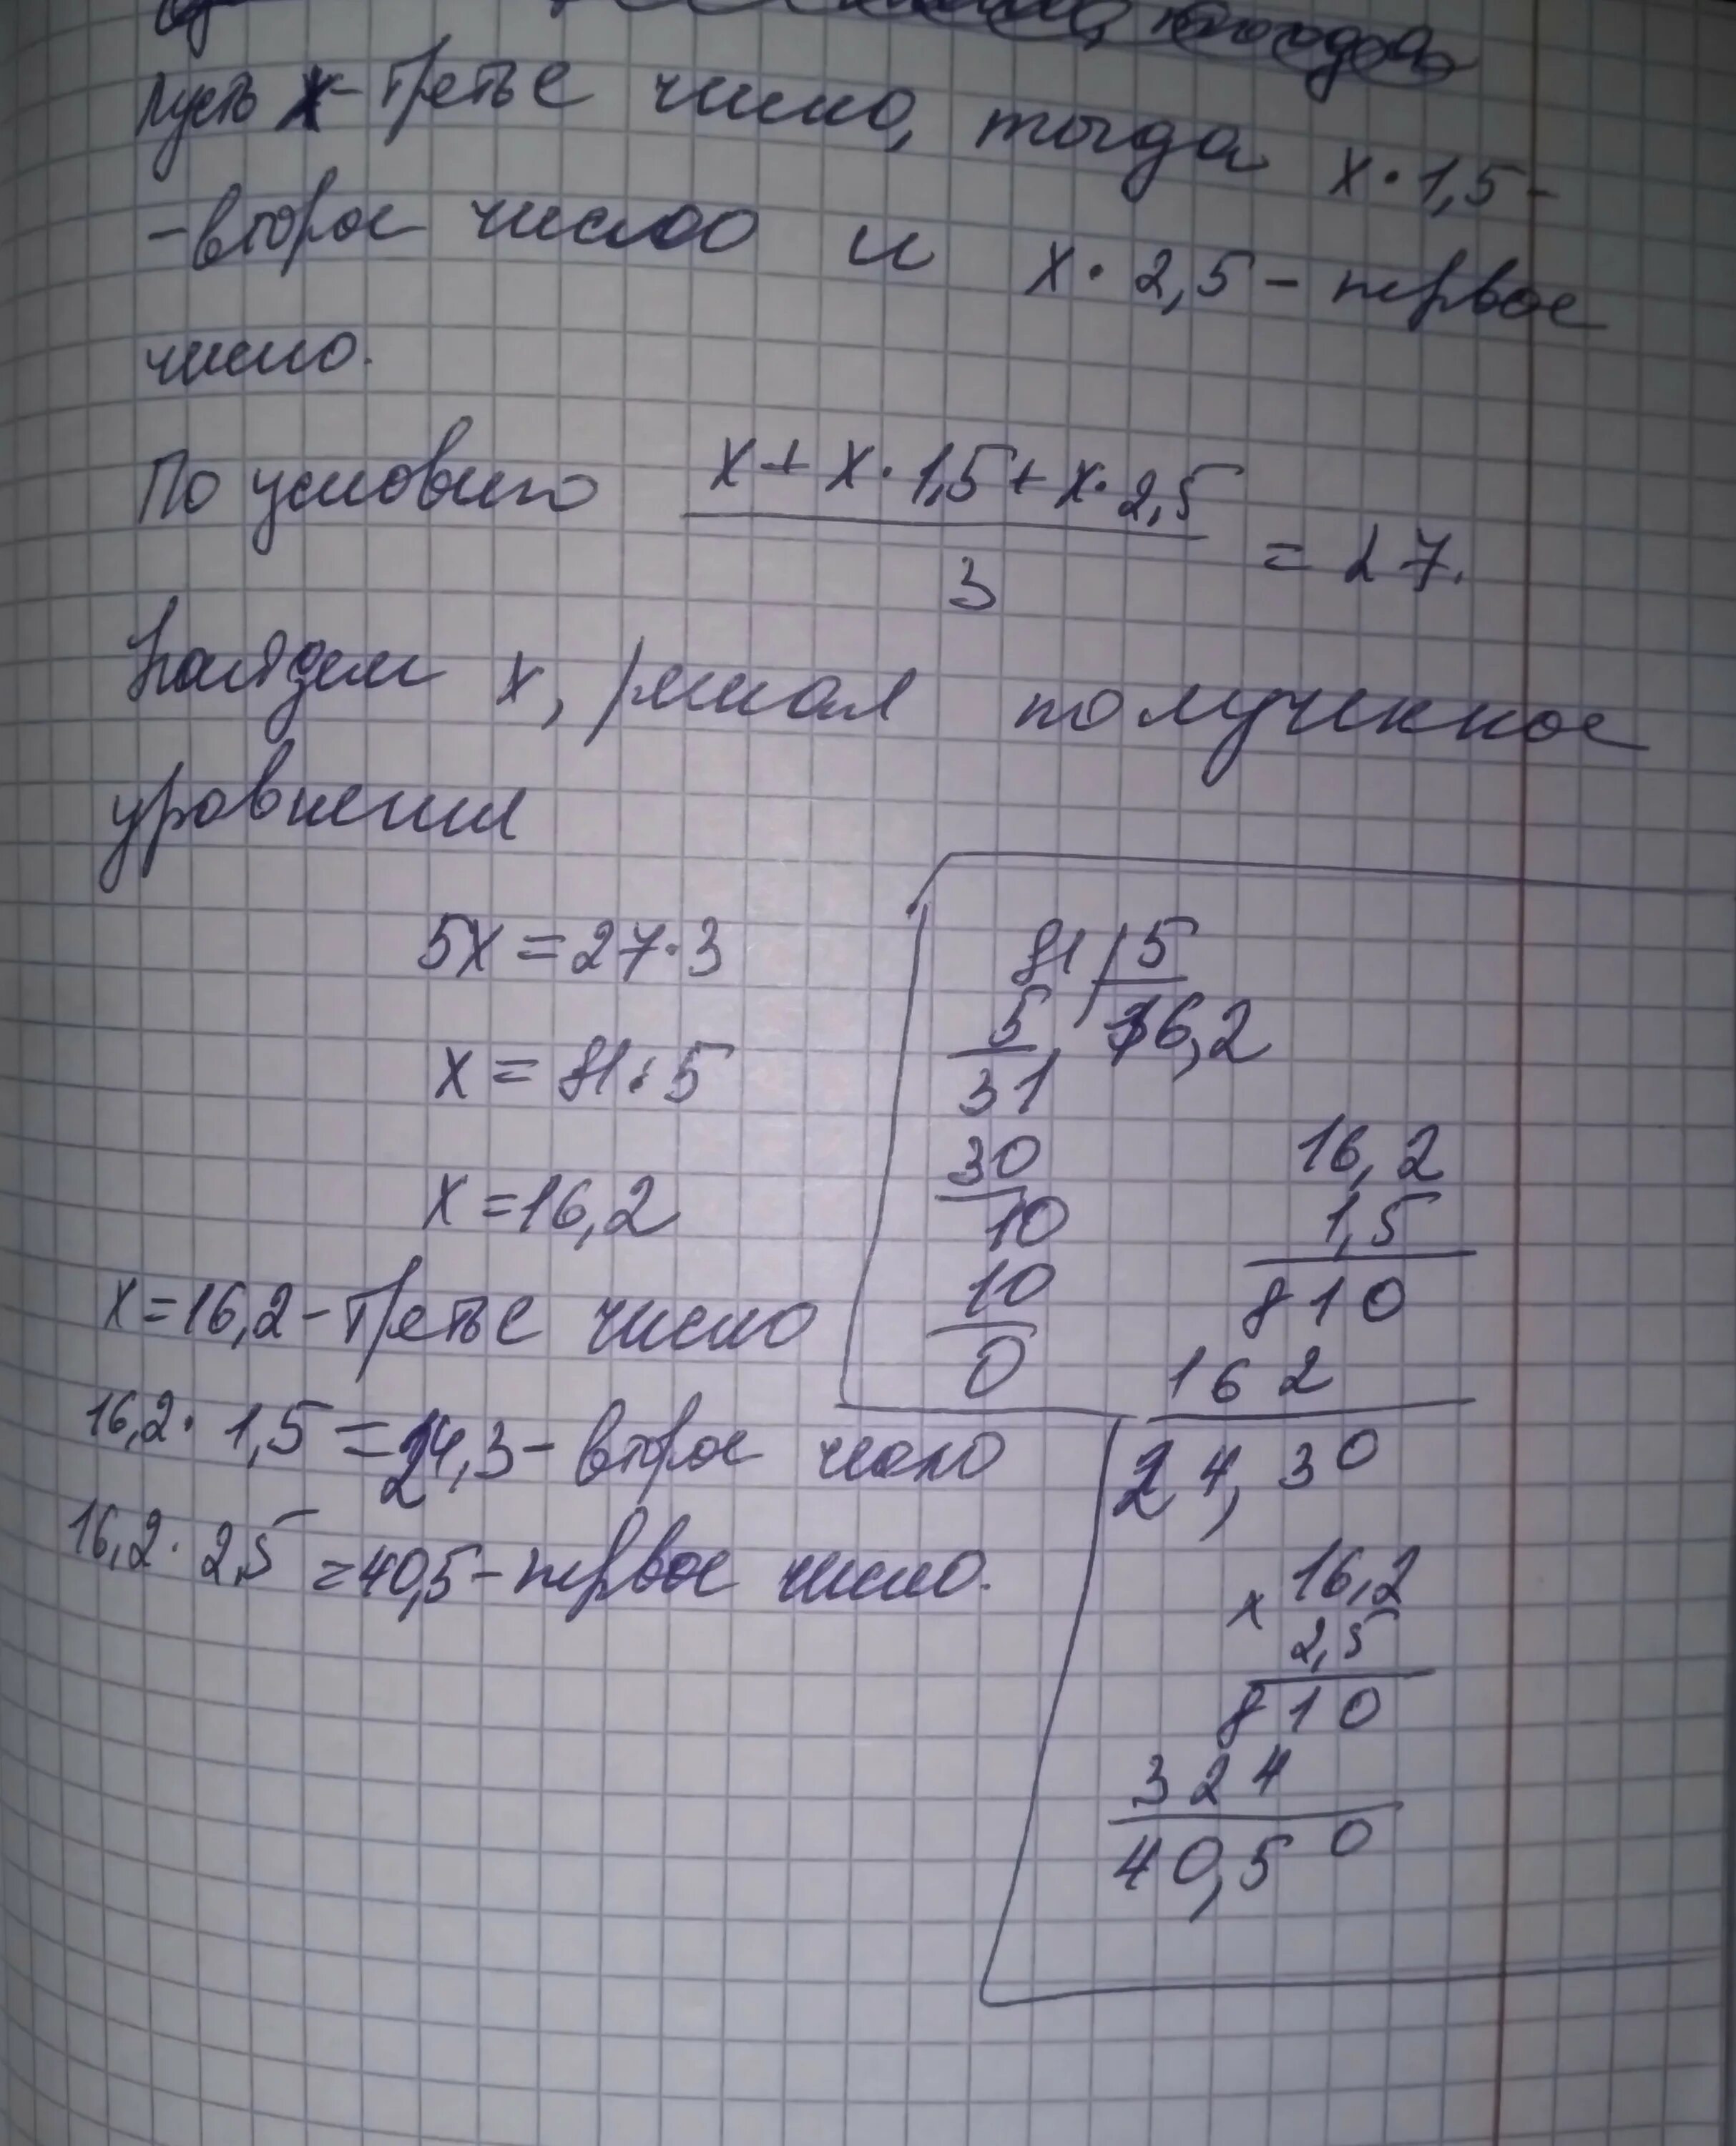 Пусть x - третье число, тогда x · 1,5 -
- второе число и x · 2,5 - первое
число.
По условию x + x · 1,5 + x · 2,5
3
= 27.
Найдем x, решая полученное
уравнения
5x = 27 · 3
x = 81 : 5
x = 16,2
x = 16,2 - третье число
16,2 · 1,5 = 24,3 - второе число
16,2 · 2,5 = 40,5 - первое число.
81 5
5 16,2
31
30
10
10
0
16,2
1,5
810
162
24,30
x 16,2
2,5
810
324
40,50